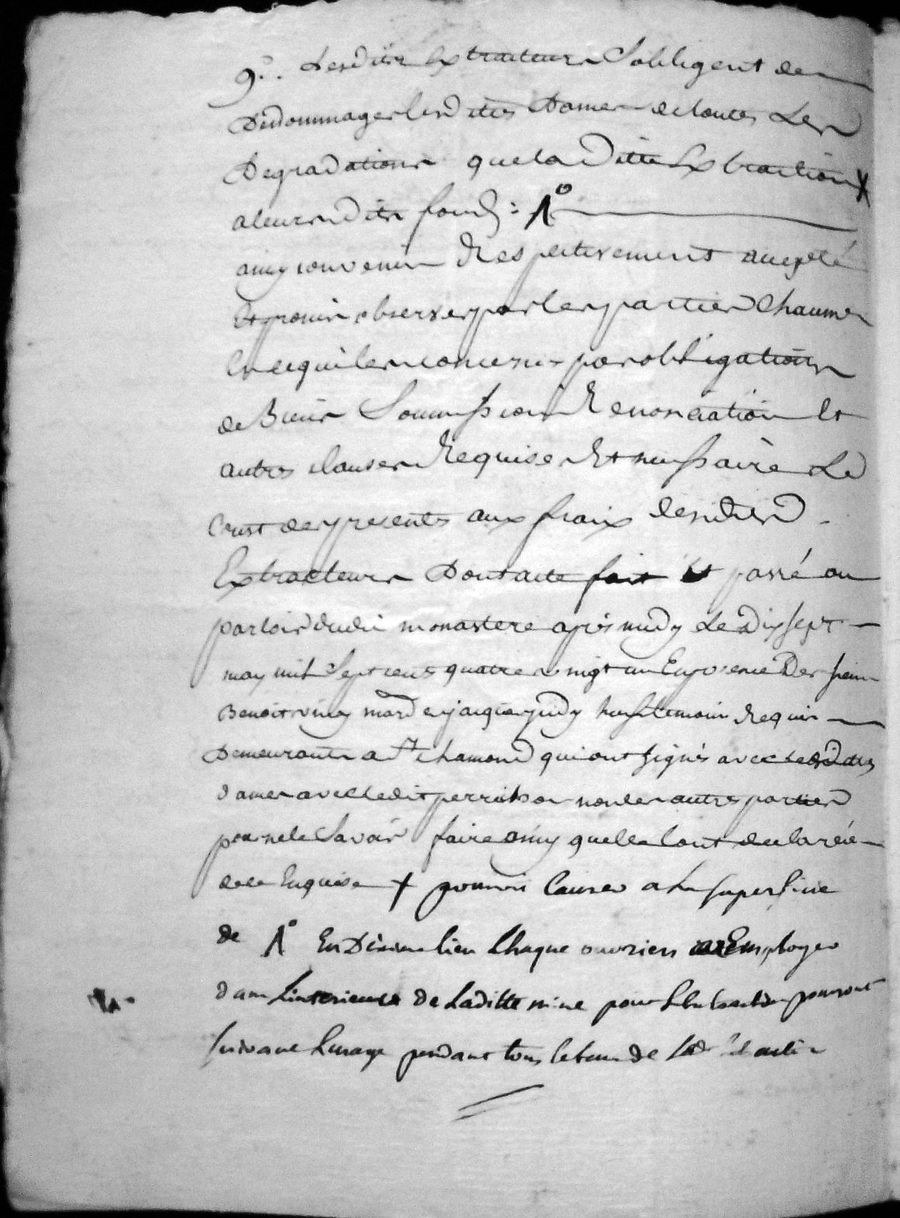 9°. Lesdits Extracteurs Sobligent de
Dédommager lesdittes Dames de toutes Les
Degradations que la Ditte Extraction X
a leursdits fonds : A°
ainsy convenu Respectivement accepté
Et promis observer par les parties Chacune
En ce qui les concerne par obligations
de Biens Soumissions Renonciations Et
autres clauses Requises Et necessaire Le
Coust des presents aux fraix desdits
Extracteurs Dont acte fait Et passé au
parloir dudit monastere après midy Le Dix sept
may mil Sept cens quatre vingt un En presence De sieur
Benoit mard et jacque
temoins Requis
Demeurants a St chamond qui ont signés avec lesdittes
dames avec ledit non les autres parties
pour ne le Savoir faire ainsy quelles ont declarées
de ce Enquise + pourroit Causer a La superficie
de A° En Dixieme lieu Chaque ouvriers Employer
dans Linterieure de Laditte mine pour Lextraction pouront
suivant Lusage pendant tous le tems de Lade